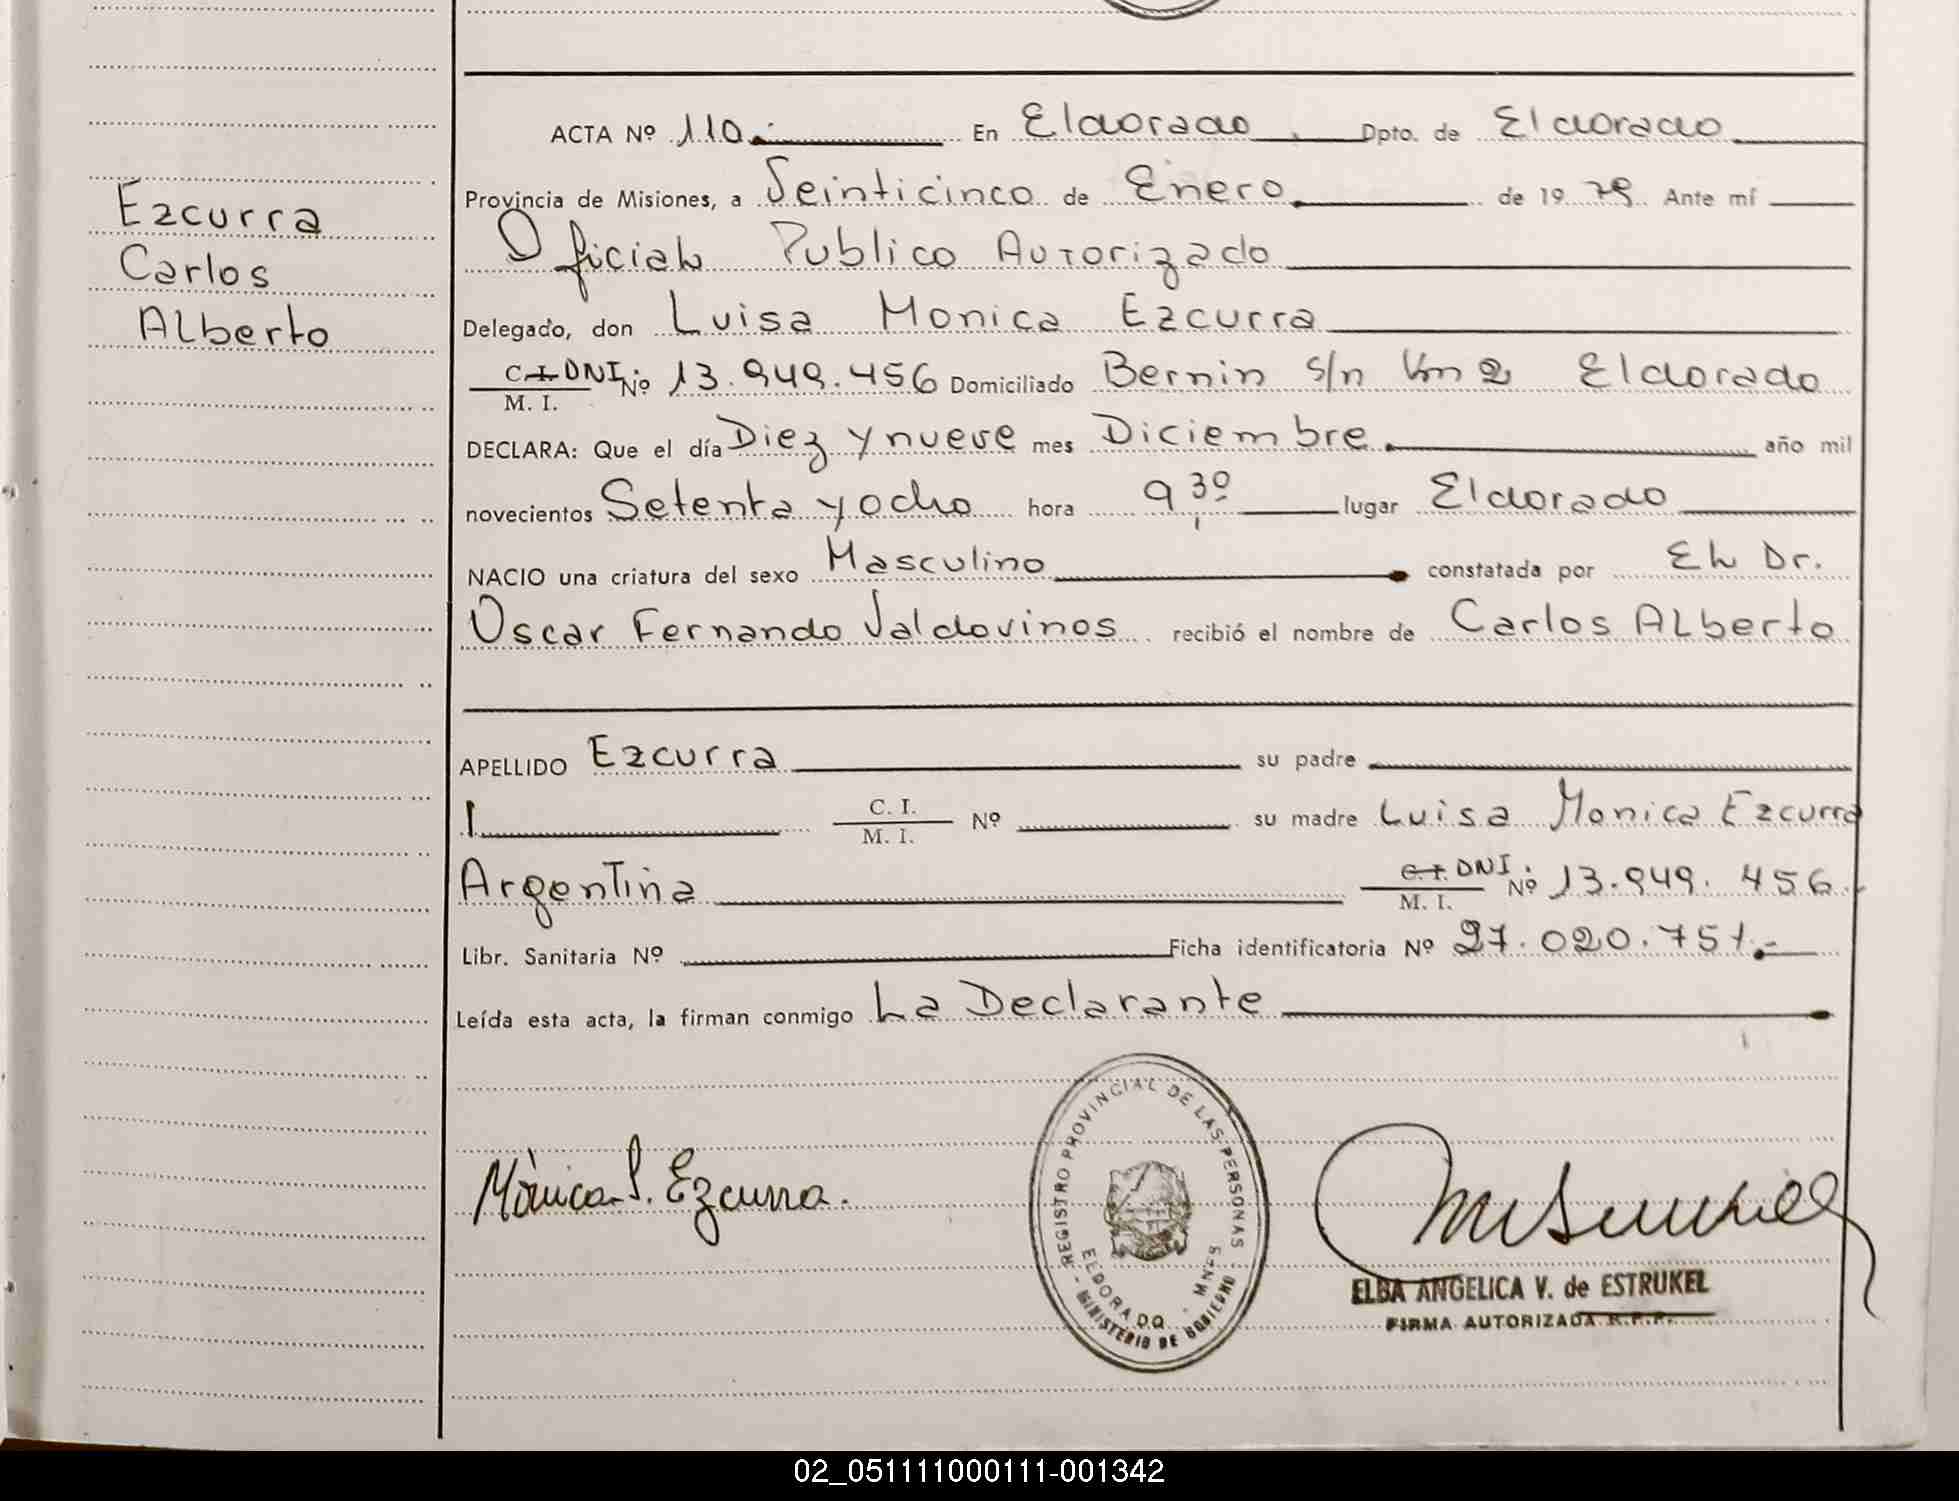 ACTA Nº 110.- En Eldorado Dpto. de Eldorado
Provincia de Misiones, a Veinticinco de Enero de 19 79 Ante mí
Oficial Publico Autorizado
Ezcurra
Carlos
Alberto
Delegado, don Luisa Monica Ezcurra
C.I. DNI. Nº 13.949.456 Domiciliado Bernin s/n Km 2 Eldorado
M. I.
DECLARA: Que el día Diez y nueve mes Diciembre año mil
novecientos Setenta y ocho hora 9 30 lugar Eldorado
NACIO una criatura del sexo Masculino constatada por El Dr.
Oscar Fernando Valdovinos recibió el nombre de Carlos Alberto
APELLIDO Ezcurra su padre
C. I. Nº su madre Luisa Monica Ezcurra
M. I.
Argentina C.I. DNI. Nº 13.949.456
M. I.
Libr. Sanitaria Nº Ficha identificatoria Nº 27.020.751.-
Leída esta acta, la firman conmigo La Declarante
REGISTRO PROVINCIAL DE LAS PERSONAS
ELDORADO - MNES
MINISTERIO DE GOBIERNO
Mónica L. Ezcurra.
ELBA ANGELICA V. de ESTRUKEL
FIRMA AUTORIZADA R.P.P.
02_051111000111-001342